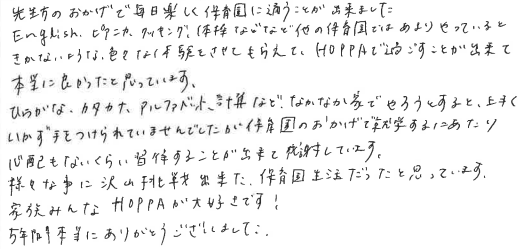 先生方のおかげで毎日楽しく保育園に通うことが出来ました
English、ピアニカ、クッキング、体操などなど他の保育園ではあまりやっていると
きかないような、色々な体験をさせてもらえて、HOPPAで過ごすことが出来て
本当に良かったと思っています。
ひらがな、カタカナ、アルファベット、計算など、なかなか家でやろうとすると、上手く
いかず手をつけられていませんでしたが保育園のおかげで就学するにあたり
心配もないくらい習得することが出来て感謝しています。
様々な事に沢山挑戦出来た、保育園生活だったと思っています。
家族みんなHOPPAが大好きです！
5年間本当にありがとうございました。